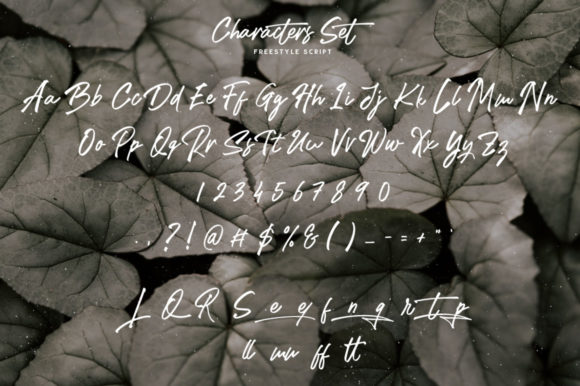 Characters Set
FREESTYLE SCRIPT
Aa Bb Cc Dd Ee Ff Gg Hh Ii Jj Kk Ll Mm Nn
Oo Pp Qq Rr Ss Tt Uu Vv Ww Xx Yy Zz
1 2 3 4 5 6 7 8 9 0
. , ? ! @ # $ % & ( ) _ - = + " '
L Q R S e f n g r t p
ll mn ff tt